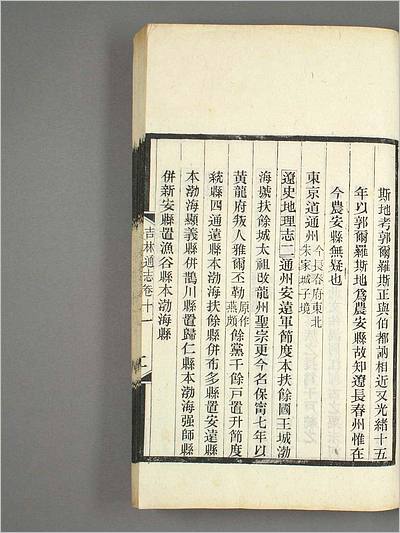 斯地考郭爾羅斯正與伯都訥相近又光緒十五
年以郭爾羅斯地爲農安縣故知遼長春州惟在
今農安縣無疑也
東京道通州今長春府東北朱家城子境
遼史地理志二通州安遠軍節度本扶餘國王城渤
海號扶餘城太祖改龍州聖宗更今名保甯七年以
黃龍府叛人雅爾丕勒原作燕頗餘黨千餘戸置升節度
統縣四通遠縣本渤海扶餘縣併布多縣置安遠縣
本渤海顯義縣併鵲川縣置歸仁縣本渤海强師縣
併新安縣置漁谷縣本渤海縣
吉林通志卷十一